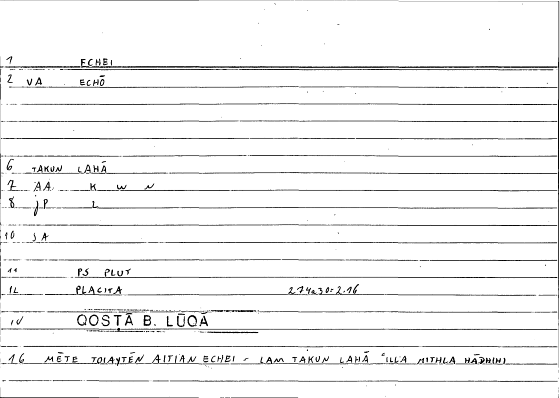 1 ECHEI
2 VA ECHŌ
6 TAKUN LAHĀ
7 AA K W N
8 jP L
10 SA
11 PS PLUT
12 PLACITA 274a30=2.16
14 QOSTĀ B. LŪQĀ
16 MĒTE TOIAYTĒN AITIAN ECHEI - LAM TAKUN LAHĀ ʿILLA MITHLA HĀDHIHI